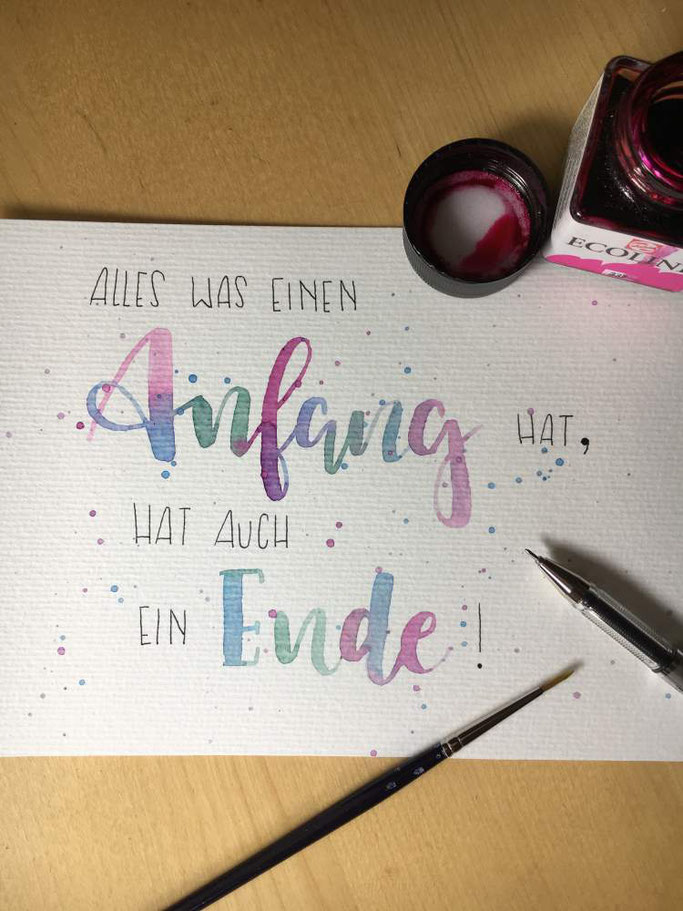 ALLES WAS EINEN
Anfang HAT,
HAT AUCH
EIN Ende!
ECOLINE